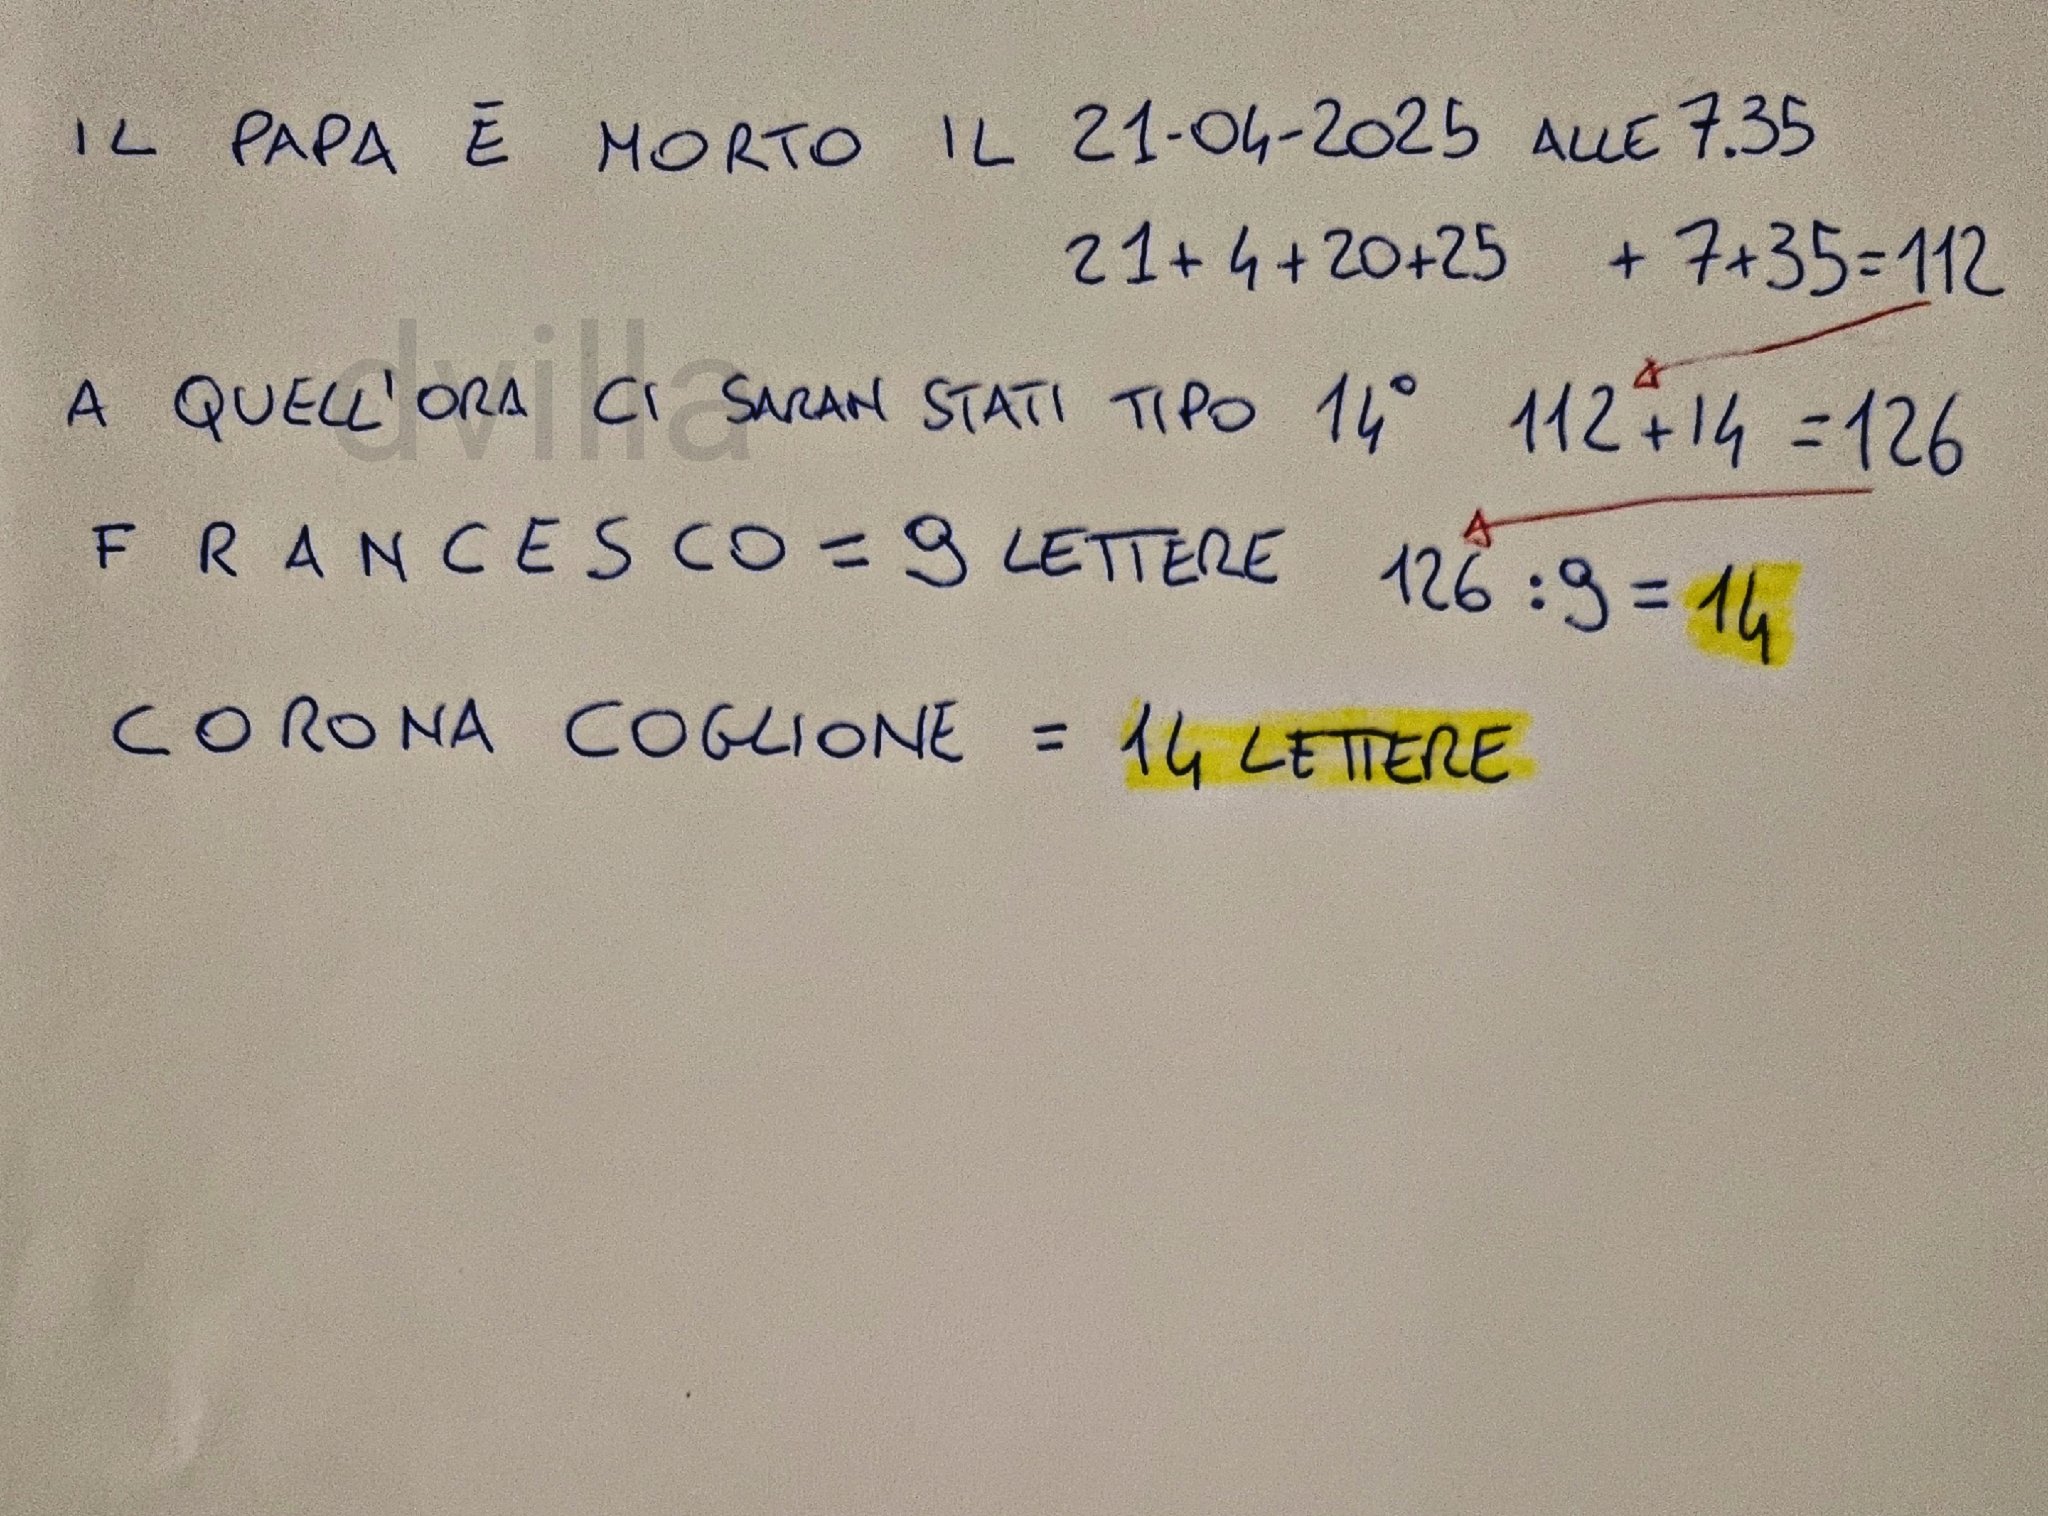 IL PAPA È MORTO IL 21-04-2025 ALLE 7.35
21+4+20+25 +7+35=112
A QUELL'ORA CI SARAN STATI TIPO 14° 112+14=126
dvilla
FRANCESCO = 9 LETTERE 126:9=14
CORONA COGLIONE = 14 LETTERE